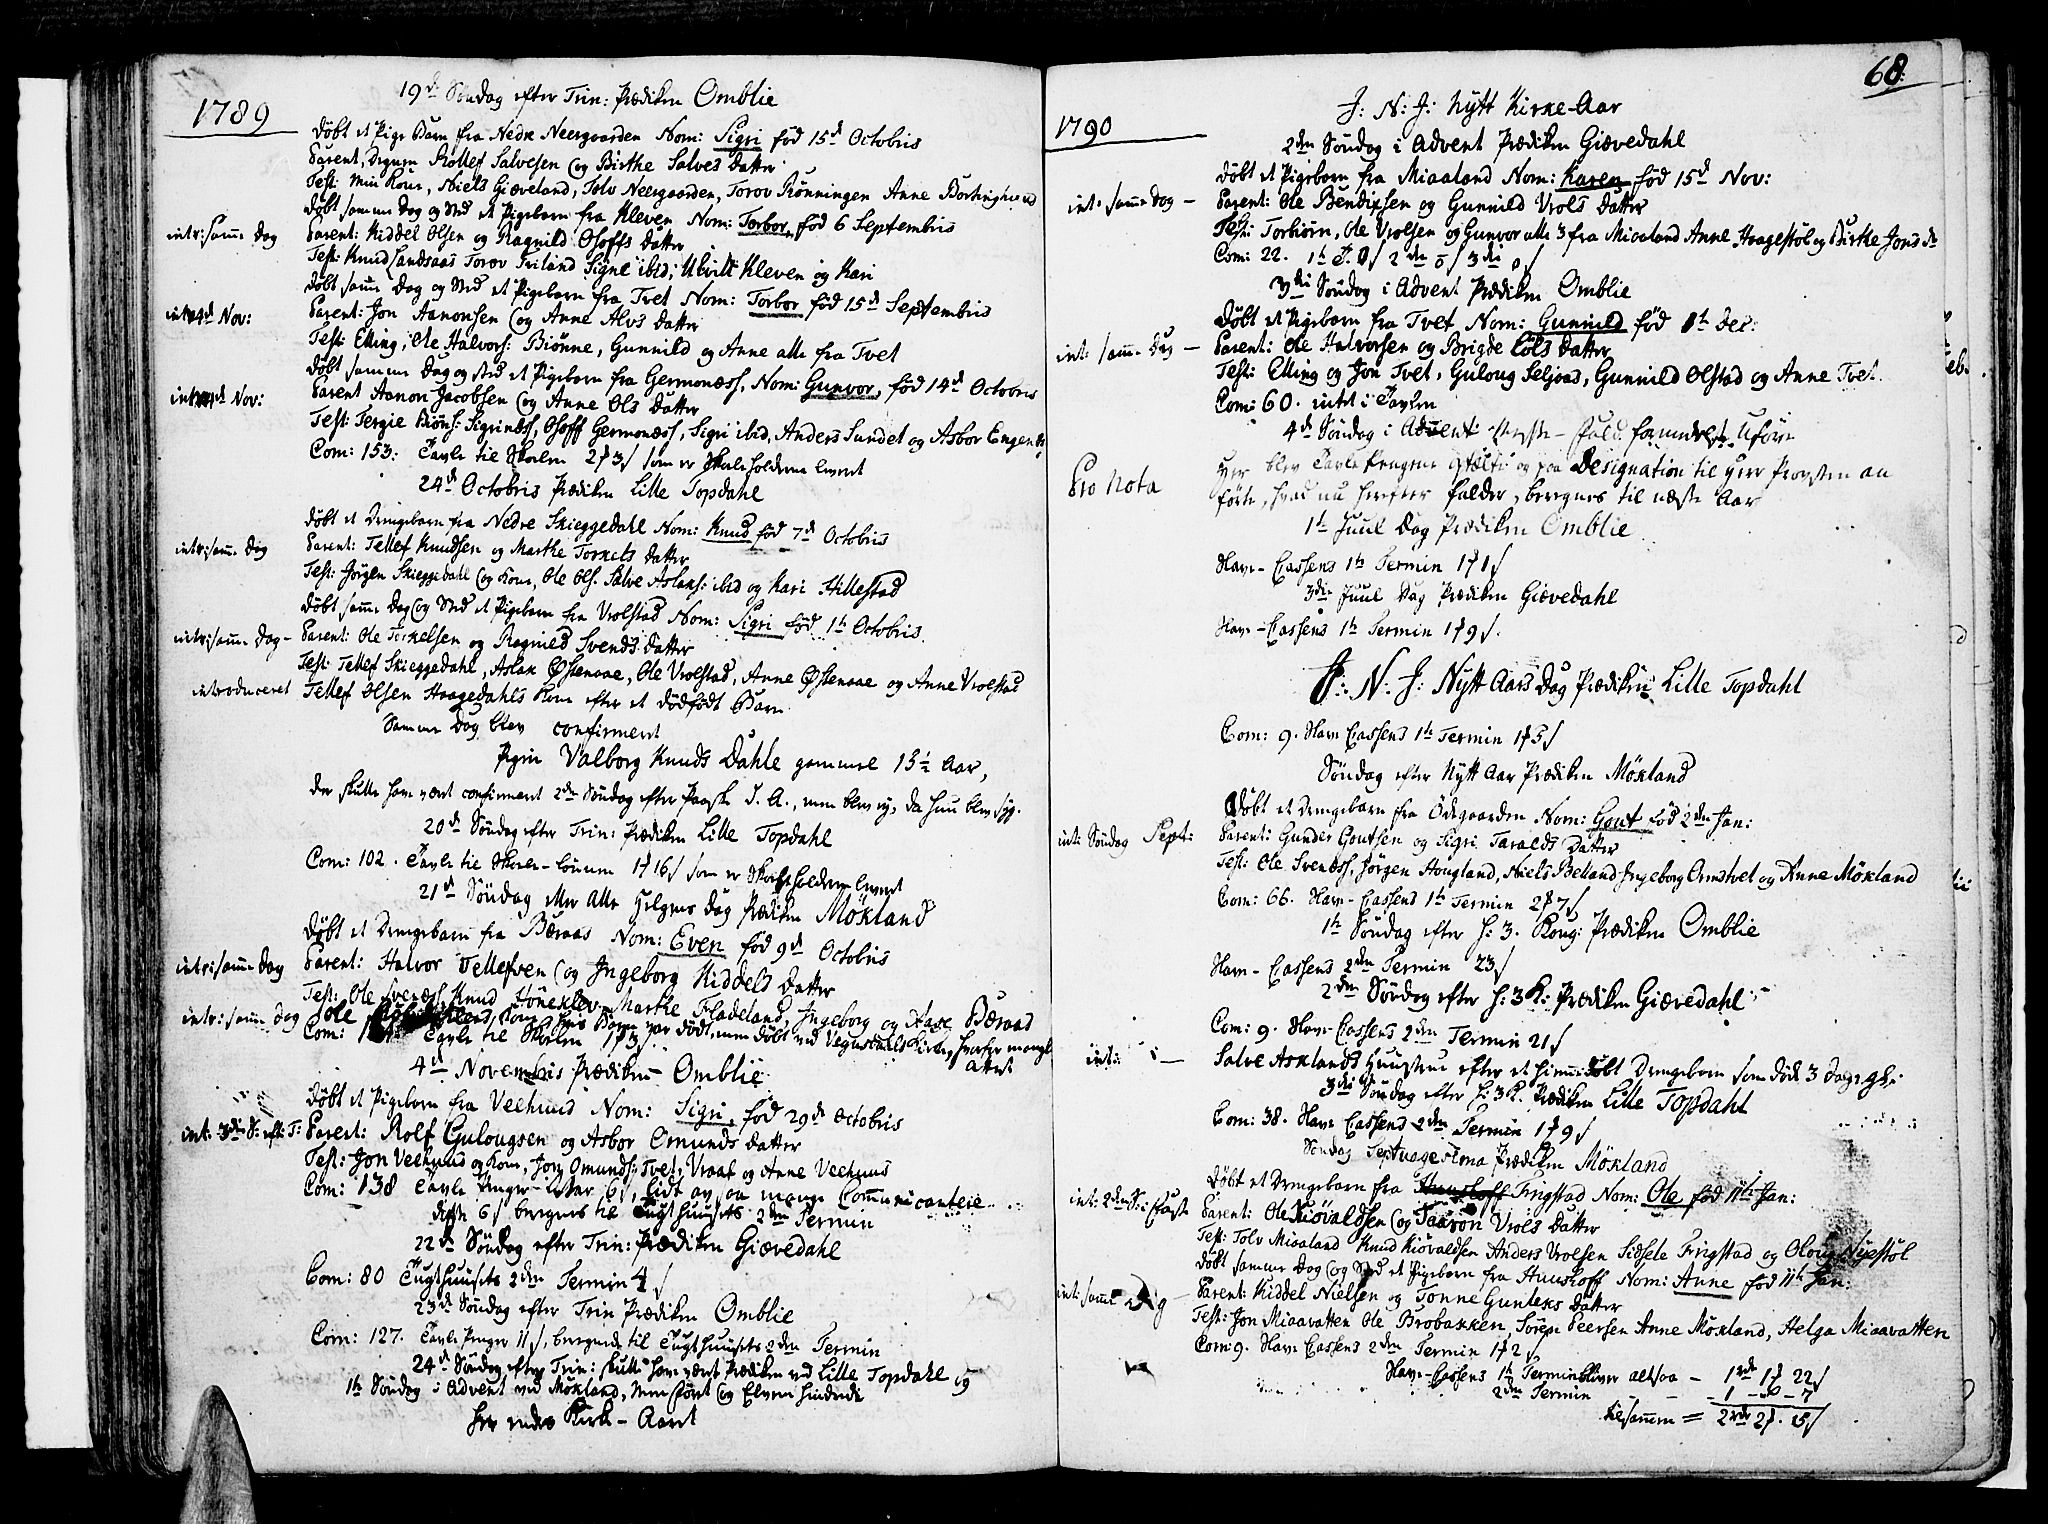 1789
19de Søndag efter Trin: Prædiken Omblie
Døbt et Pige Barn fra Nedre Neergaarden Nom: Sigri fød 15de Octobris
Parent, Drguen Rollef Salvesen og Birthe Salves Datter
Test: min Kone, Niels Giæveland, Tolv Neergaarden, Torov Rønningen Anne
Døbt samme Dag og Sted et Pigebarn fra Kleven Nom: Torbor fød 6 Septembris
intr: samme Dag
Parent: Kiddel Olsen og Ragnild Osoffs Datter
Test: Knud Landsaas Torov Friland Signe ibid; Kleven og Kari
Døbt samme Dag og Sted et Pigebarn fra Tvet Nom: Torbor fød 15de Septembris
Nov:
Parent: Jon Aanonsen og Anne Alvs Datter
Test: Elling, Ole Halvors: Biønne, Gunnild og Anne alle fra Tvet
Døbt samme Dag og Sted et Pigebarn fra Germonæss, Nom: Gunvor, fød 14de Octobris
Nov:
Parent Aanon Jacobsen og Anne Ols Datter
Test: Tergie Biøns: Sigrinæss, Osoff Germonæss, Sigri ibid, Anders Sundet og Asbor Engenes
Com: 153: Tavle til Skolen 2f 3s som er Skoleholderne leveret
24de Octobris Prædiken Lille Topdahl
Døbt et Drengebarn fra Nedre Skieggedahl Nom: Knud fød 7de Octobris
intr: samme Dag
Parent: Tellef Knudsen og Marthe Torkels Datter
Test: Jørgen Skieggedahl og Kone, Ole Ols. Salve Aslaks: ibid og Kari Hillestad
Døbt samme Dag og Sted et Pigebarn fra Vrolstad Nom: Sigri fød 1te Octobris
intr: samme Dag-
Parent: Ole Terkelsen og Ragnild Svends Datter
Test: Tellef Skieggedahl, Aslak Østenaae, Ole Vrolstad, Anne Østenaae og Anne Vrolstad
introduceret Tellef Olsen Haagedahls Kone efter et dødfødt Barn
Samme Dag blev confirmeret
Pigen Valborg Knuds Dahle gammel 15½ Aar,
der skulle have været confirmeret 2den Søndag efter Paaske I. A., men blev ey, da hun blev syg.
20de Søndag efter Trin: Prædiken Lille Topdahl
Com: 102. Tavle til Skole-Lønnen 1f 16s som er Skoleholderne leveret
21de Søndag eller Alle Helgens Dag Prædiken Møkland
Døbt et Drengebarn fra Bæraas Nom: Even fød 9de Octobris
intr: samme Dag
Parent: Halvor Tellefsen og Ingeborg Kiddels Datter
Test: Ole Svenæss, Knud Hønekleven Marthe Fladeland, Ingeborg og Aase Bæraas
intr: samme Dag Ole Kone hvis Barn var dødt, men døbt ved Vegusdals Kirke, hvorfor mangl
Attest
Com: Tavle til Skolen 1f 3s
4de Novembris Prædiken Omblie
Døbt et Pigebarn fra Veehuus Nom: Sigri, fød 29de Octobris
int: 3die S: eft: T:
Parent: Rolf Gulougsen og Asbor Omunds Datter
Test: Jon Veehuus og Kone, Jon Omunds: Tvet, Vraal og Anne Veehuus
Com: 138 Tavle Penger 6s, lidt av saa mange Communicantere
disse 6s beregnes til Tugthuusets 2den Termin
22de Søndag efter Trin: Prædiken Giævedahl
Com: 80 Tugthuusets 2den Termin 4s
23de Søndag efter Trin Prædiken Omblie
Com: 127. Tavle Penger 11s, beregnede til Tugthuusets 2den Termin
24de Søndag efter Trin: skulle have været Prædiken ved Lille Topdahl og
1te Søndag i Advent ved Møkland, men Føret og Elven hindrede
her endes Kirke-Aaret
68.
1790
J: N: J: Nytt Kirke-Aar
2den Søndag i Advent Prædiken Giævedahl
Døbt et Pigebarn fra Miaaland Nom: Karen fød 15de Nov:
int: samme Dag -
Parent: Ole Bendixsen og Gunnild Vrols Datter
Test: Torbiørn, Ole Vrolsen og Gunvor alle 3 fra Miaaland Anne Haagestøl og Birthe Jons Dr
Com: 22. 1te T. 0s 2den 0s 3die 0s
3die Søndag i Advent Prædiken Omblie
Døbt et Pigebarn fra Tvet Nom: Gunnild fød 1te Dec:
int: samme Dag -
Parent: Ole Halvorsen og Brigde Eols Datter
Test: Elling og Jon Tvet, Guloug Seljaas, Gunnild Olstad og Anne Tvet.
Com: 60. intet i Tavlen
4de Søndag i Advent Messe-Fald formedelst Uføre
Pro Nota
Her blev Tavlepengene optælte og paa Designation til Herr Provsten an
førte, hvad nu herefter falder, beregnes til næste Aar
1te Juul Dag Prædiken Omblie
Havn-Cassens 1te Termin 1f 1s
3die Juul Dag Prædiken Giævedahl
Havn-Cassens 1te Termin 1f 9s.
J: N: J: Nytt Aars Dag Prædiken Lille Topdahl
Com: 9. Havn Cassens 1te Termin 1f 5s
Søndag efter Nytt Aar Prædiken Møkland
Døbt et Drengebarn fra Ödegaarden Nom: Gout fød 2den Jan:
int: Søndag Sept:
Parent: Gunder Goutsen og Sigri Taralds Datter
Test: Ole Svenæss, Jørgen Hougland, Niels Belland Ingeborg Ormstvet og Anne Møkland
Com: 66. Havn-Cassens 1te Termin 2f 7s
1te Søndag efter H: 3. Kong: Prædiken Omblie
Havn-Cassens 2den Termin 23s
2den Søndag efter H: 3 K: Prædiken Giævedahl
Com: 9. Havn-Cassens 2den Termin 21s
int:
Salve Asklands Huustrue efter et hiemmedøbt Drengebarn som døde 3 Dage gl:
3die Søndag efter H: 3 K. Prædiken Lille Topdahl
Com: 38. Havn Cassens 2den Termin 1f 9s
Søndag Septuagesima Prædiken Møkland
Døbt et Drengebarn fra Frigstad Nom: Ole fød 11te Jan:
int: 2den S: i Faste
Parent: Ole Kiøvaldsen og Taaron Vrols Datter
Test: Tolv Miaaland Knud Kiøvaldsen Anders Vrolsen Sidsele Frigstad og Oloug Nyestøl
Døbt samme Dag og Sted et Pigebarn fra Huusloff Nom: Anne fød 11te Jan:
int: samme Dag
Parent: Kiddel Nielsen og Tonne Gunleks Datter
Test: Jon Miaavatten Ole Brobakken, Søren Peersen Anne Møkland, Helga Miaavatten
Com: 9. Havn Cassens 2den Termin 1f 2s
Havn-Cassens 1te Termin bliver altsaa - 1rd 1f 22s
2den Termin - - 1 - 0 - 7
tilsammen = 2rd 2f. 5s